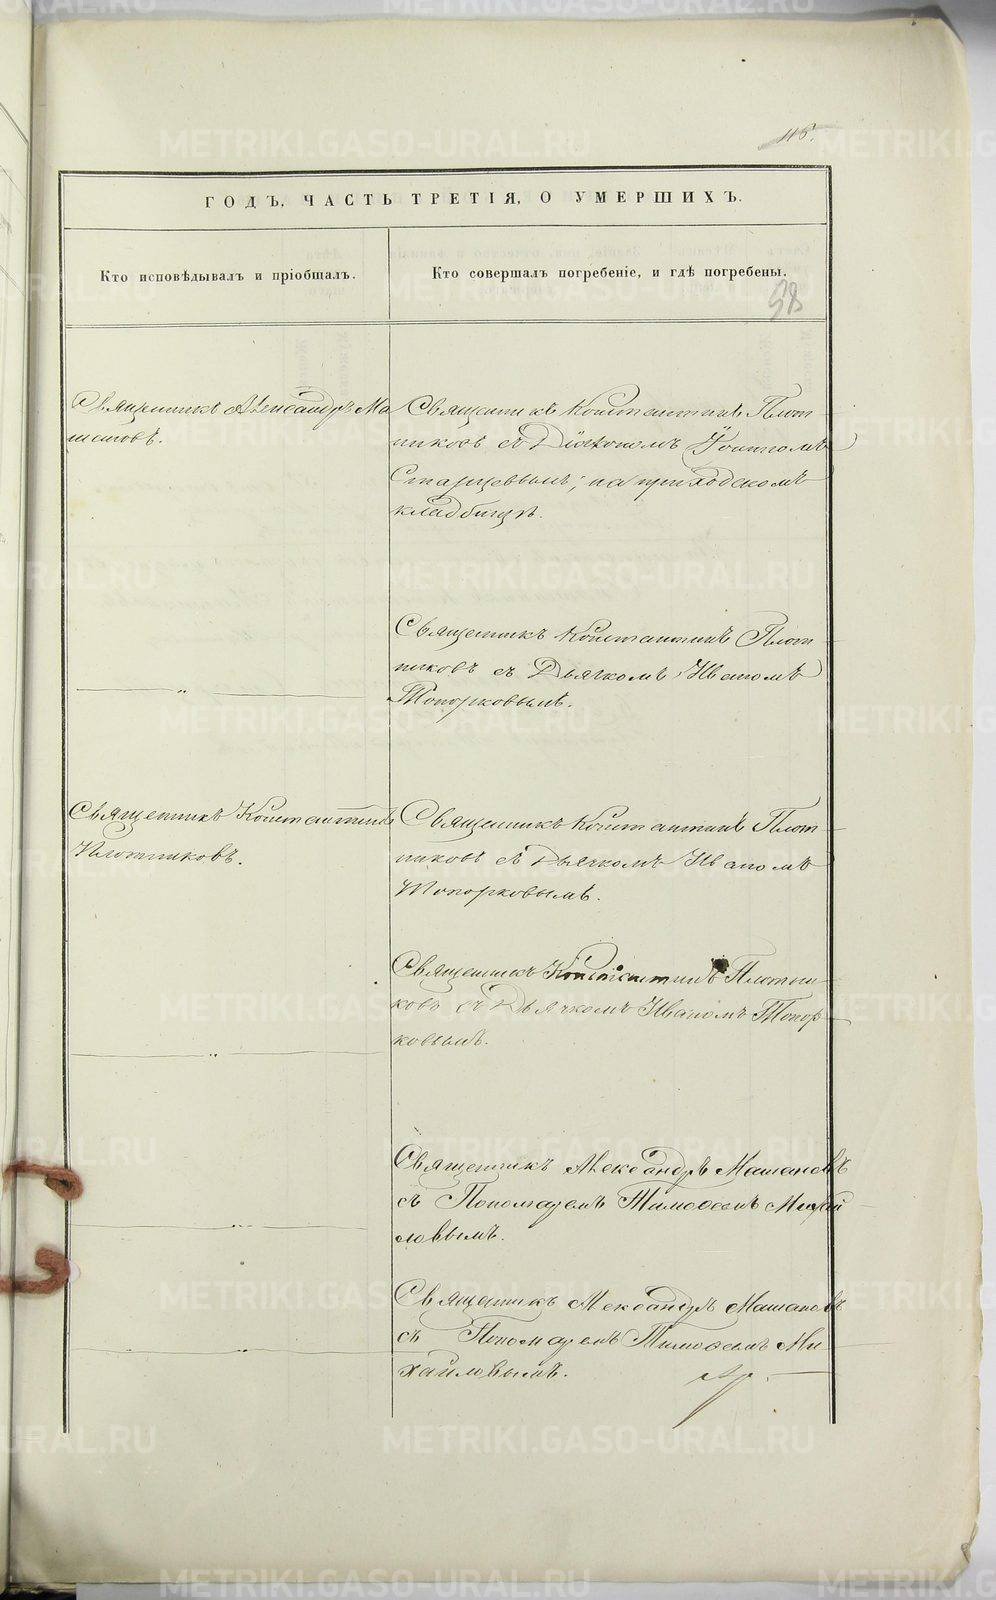 118.
ГОДЪ, ЧАСТЬ ТРЕТІЯ, О УМЕРШИХЪ.
Кто исповѣдывалъ и пріобщалъ.
Кто совершалъ погребеніе, и гдѣ погребены.
98
Священникъ Александръ Ма
шановъ.
Священникъ Константинъ Плот
никовъ съ Діакономъ Іоанномъ
Старцевымъ; на приходскомъ
кладбищѣ.
— „ —
Священникъ Константинъ Плот
никовъ съ Дьячкомъ Иваномъ
Топорковымъ.
Священникъ Константинъ
Плотниковъ.
Священникъ Константинъ Плот
никовъ съ Дьячкомъ Иваномъ
Топорковымъ.
— „ —
Священникъ Константинъ Плотни
ковъ съ Дьячкомъ Иваномъ Топор
ковымъ.
— „ —
Священникъ Александръ Машановъ
съ Пономаремъ Тимофеемъ Михай
ловымъ.
— „ —
Священникъ Александръ Машановъ
съ Пономаремъ Тимофеемъ Ми
хайловымъ.
METRIKI.GASO-URAL.RU